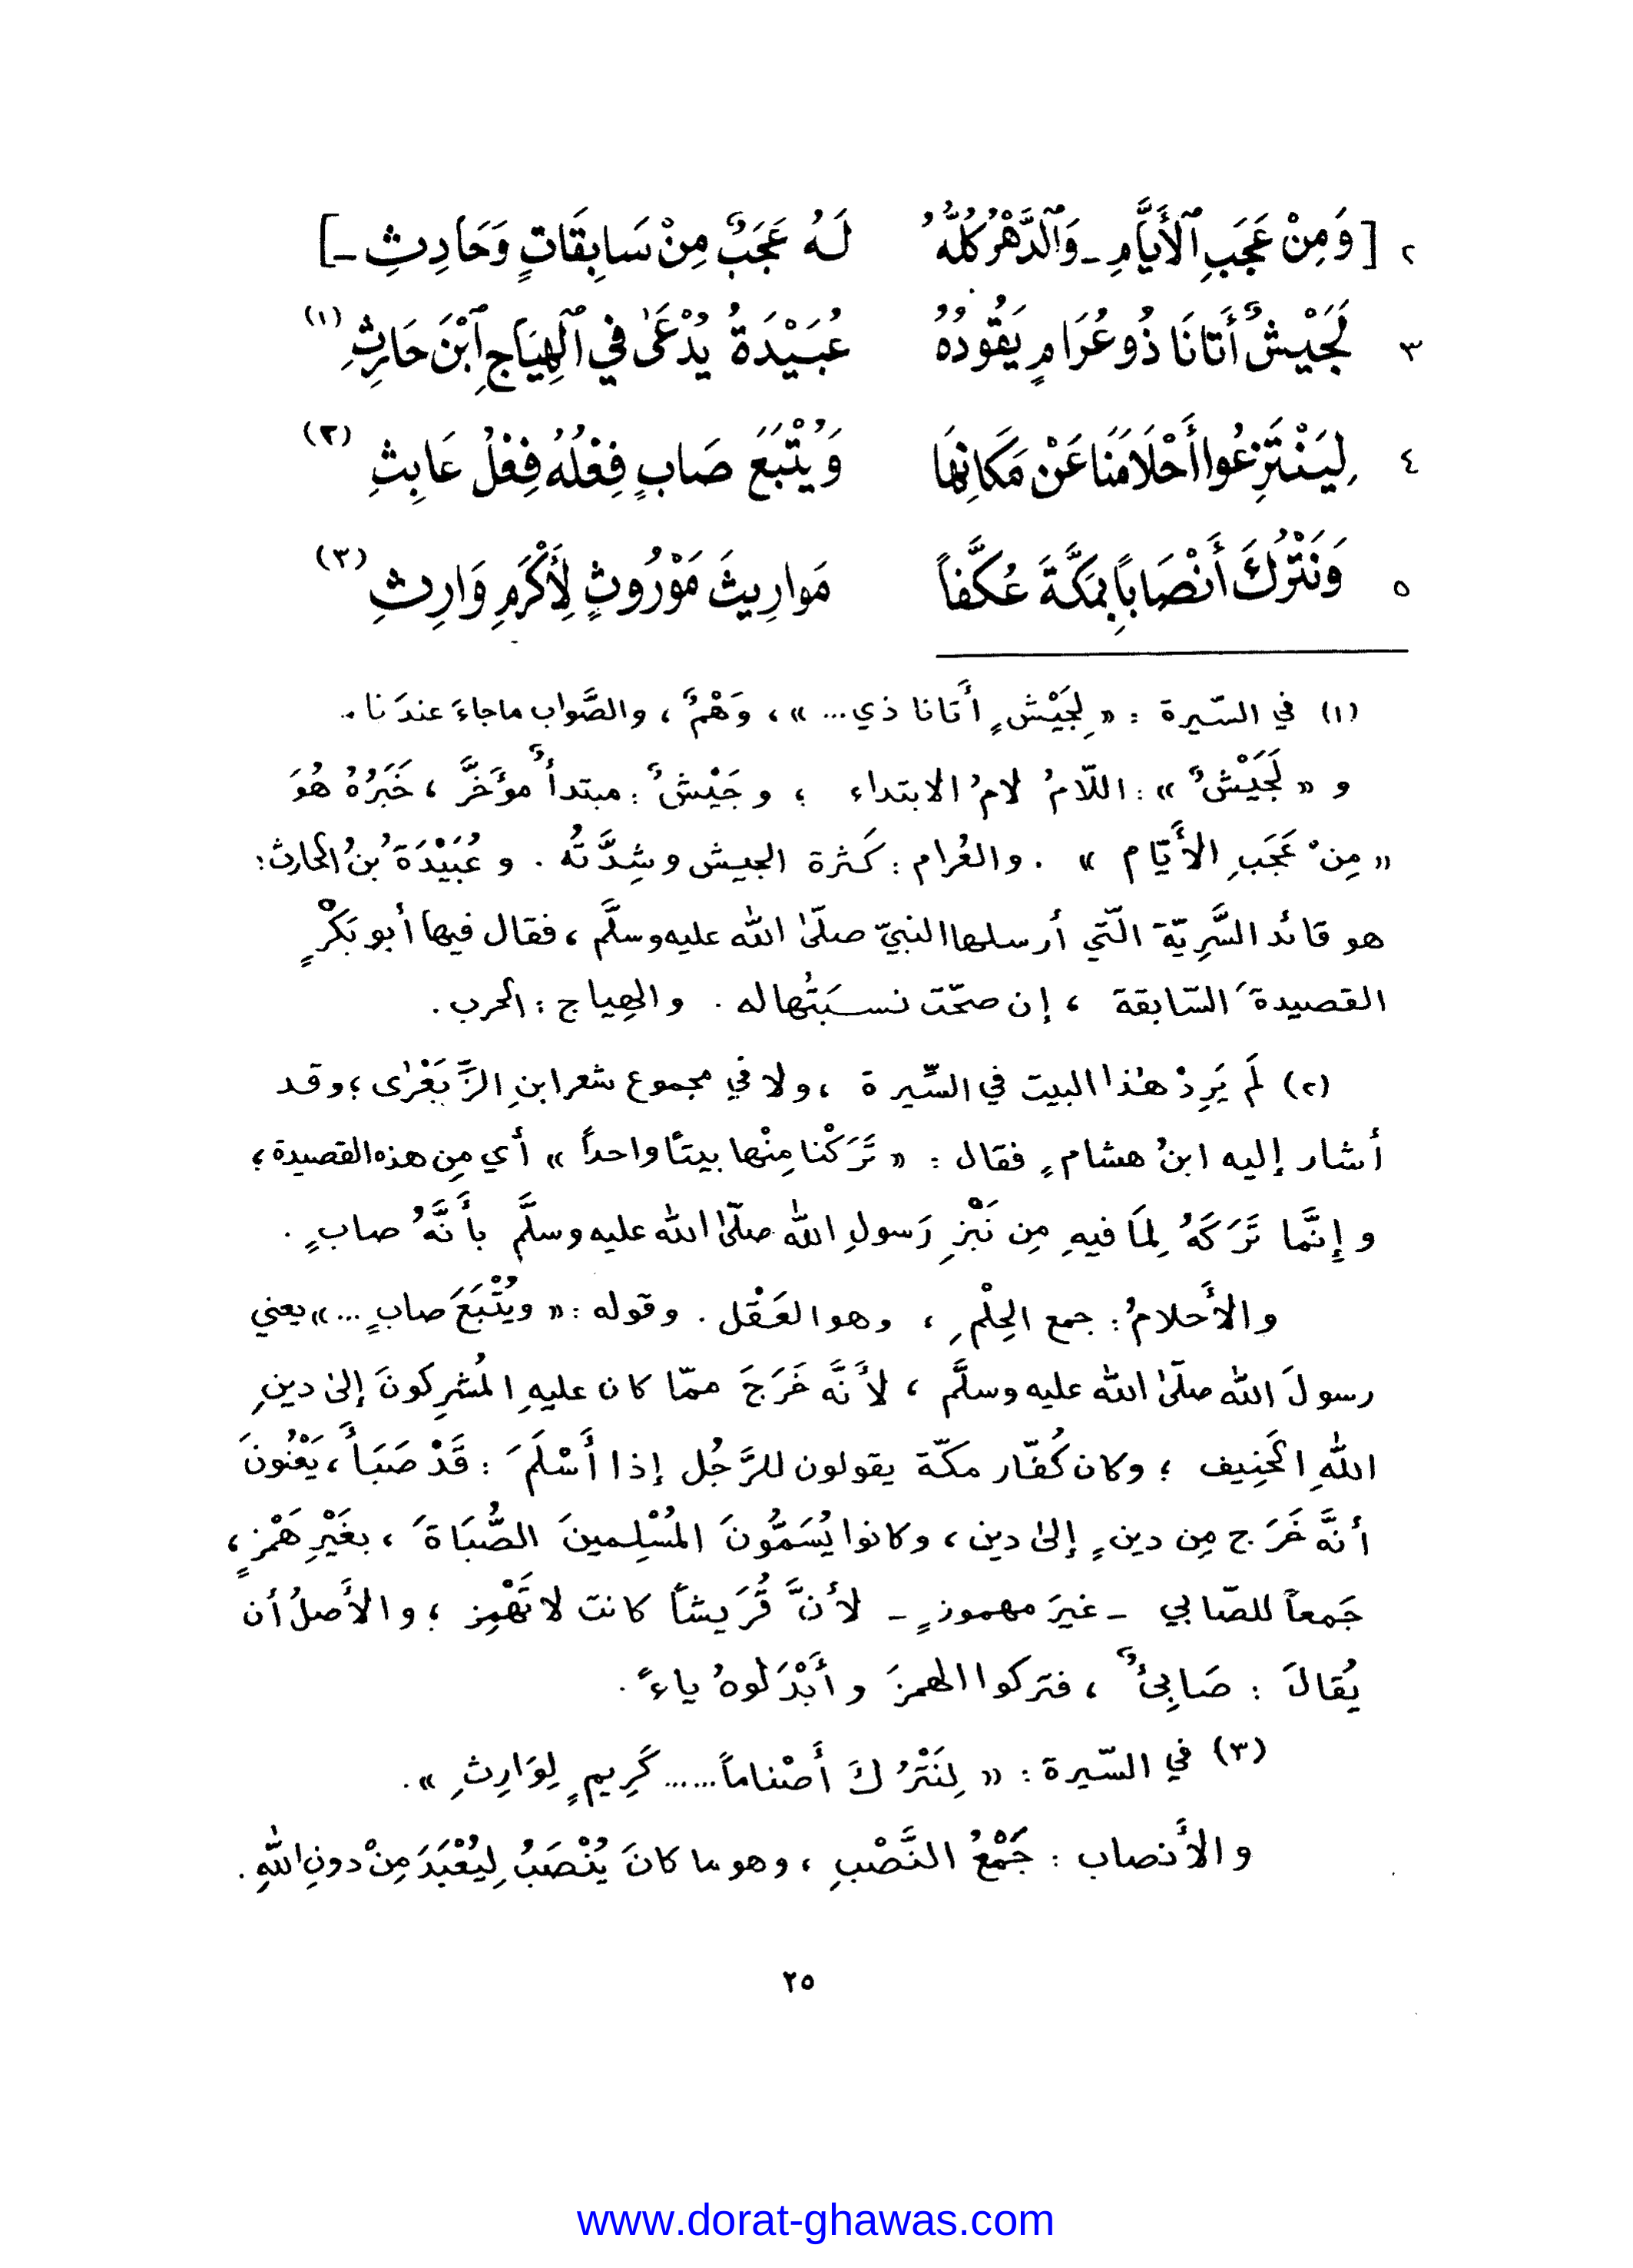 ٢ [ وَمِنْ عَجَبِ ٱلْأَيَّامِ ـ وَٱلدَّهْرُ كُلُّهُ لَهُ عَجَبٌ مِنْ سَابِقَاتٍ وَحَادِثِ ـ ]
٣ لَجَيْشٌ أَتَانَا ذُو عُرَامٍ يَقُودُهُ عُبَيْدَةُ يُدْعَىٰ فِي ٱلْهِيَاجِ ٱبْنَ حَارِثِ (١)
٤ لِيَنْتَزِعُوا أَحْلَامَنَا عَنْ مَكَانِهَا وَيُتْبَعَ صَابٍ فِعْلُهُ فِعْلُ عَابِثِ (٢)
٥ وَنَتْرُكَ أَنْصَاباً بِمَكَّةَ عُكَّفاً مَوارِيثَ مَوْرُوثٍ لِأَكْرَمِ وَارِثِ (٣)
(١) في السّيرة : « لِجَيْشٍ أَتانا ذي ... » ، وَهْمٌ ، والصَّواب ماجاءَ عندَنا .
و « لَجَيْشٌ » : اللّامُ لامُ الابتداء ؛ وجَيْشٌ : مبتدأٌ مؤخَّر ، خَبَرُهُ هُوَ
« مِنْ عَجَبِ الأَيّام » . والعُرام : كَثرة الجيش وشِدَّتُه . وعُبَيْدَةُ بنُ الحارث :
هو قائد السَّرِيّة الّتي أرسلها النبيّ صلّىٰ الله عليه وسلَّم ، فقال فيها أبو بَكْرٍ
القصيدةَ السّابقة ، إن صحّت نسبَتُها له . والهِياج : الحرب .
(٢) لَم يَرِدْ هٰذا البيت في السِّيرة ، ولا في مجموع شعر ابنِ الزِّبَعْرٰى ؛ وقد
أشار إليه ابنُ هشامٍ فقال : « تَرَكْنا مِنْها بيتاً واحداً » أي مِن هذه القصيدة ؛
وإنَّما تَرَكَهُ لِمَا فيهِ مِن نَبْزِ رَسولِ اللهِ صلّىٰ الله عليه وسلَّم بأَنَّهُ صابٍ .
والأَحلامُ : جمع الحِلْمِ ، وهو العَقْل . وقوله : « ويُتْبَعَ صابٍ ... » يعني
رسولَ الله صلّىٰ الله عليه وسلَّم ، لأَنَّه خَرَجَ ممّا كان عليهِ المُشرِكونَ إلىٰ دينِ
اللهِ الحَنِيف ؛ وكان كُفّار مكّة يقولون للرَّجُل إذا أَسْلَمَ : قَدْ صَبَأَ ، يَعْنُونَ
أنَّه خَرَج مِن دينٍ إلىٰ دين ، وكانوا يُسَمُّونَ المُسْلِمينَ الصُّبَاةَ ، بغَيْرِ هَمْزٍ ،
جَمعاً للصّابي ـ غيرَ مهموزٍ ـ لأنَّ قُرَيشاً كانت لا تَهْمِز ؛ والأَصلُ أن
يُقالَ : صَابِئٌ ، فتركوا الهمزَ وأَبْدَلُوهُ ياءً .
(٣) في السّيرة : « لِنَتْرُكَ أَصْناماً ...... كَرِيمٍ لِوَارِثِ » .
والأَنصاب : جَمْعُ النَّصْبِ ، وهو ما كانَ يُنْصَبُ لِيُعْبَدَ مِنْ دونِ اللهِ .
٢٥
www.dorat-ghawas.com